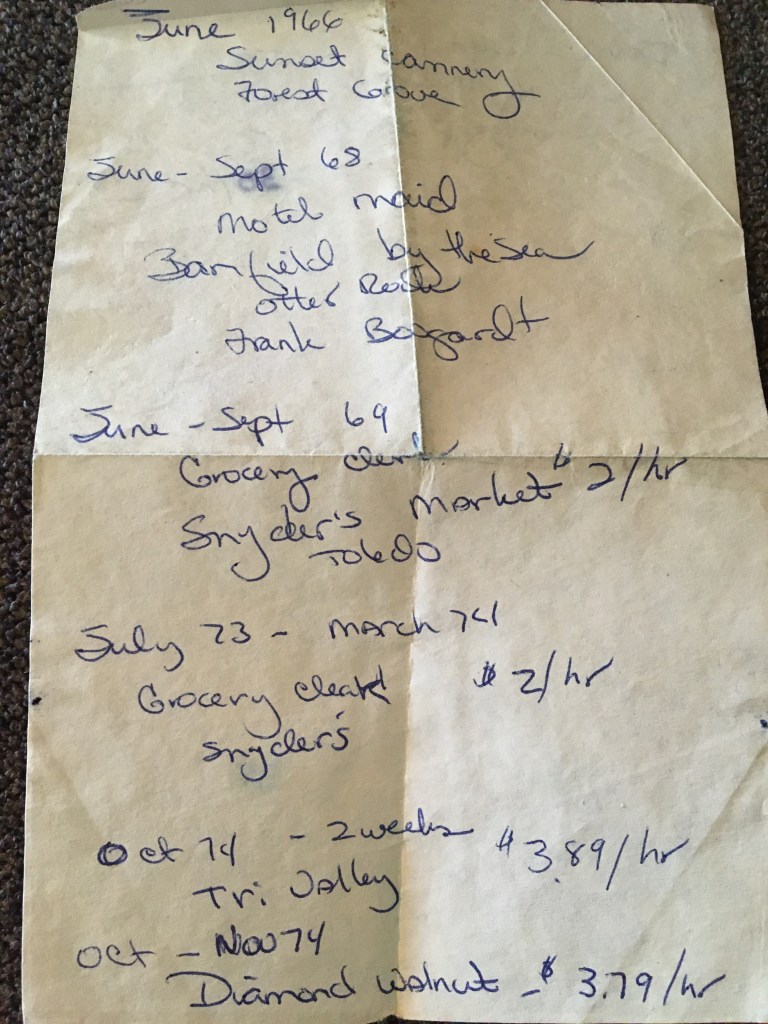 June 1966
Sunset Cannery
Forest Grove
June - Sept 68
Motel maid
Banfield by the Sea
Otter Rock
Frank Bosgardt
June - Sept 69
Grocery clerk
Snyder's market $2/hr
Toledo
July 73 - March 74
Grocery cleark $2/hr
Snyder's
Oct 74 - 2 weeks $3.89/hr
Tri Valley
Oct - Nov 74
Diamond Walnut - $3.79/hr